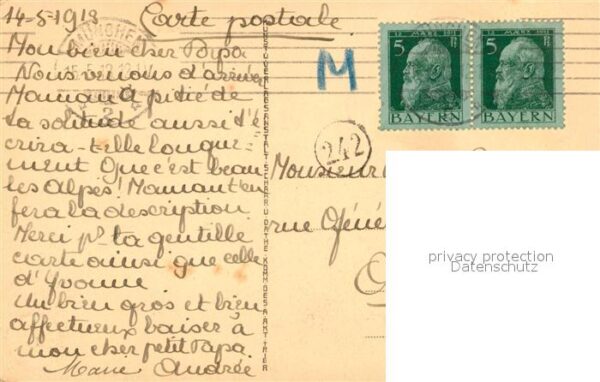 14-5-1913 Carte postale
Mon bien cher Papa
Nous venons d'arriver
Maman a pitié de
ta solitude aussi t'é
crira-t-elle longue-
ment Que c'est beau
les Alpes! Maman t'en
fera la description
Merci pr ta gentille
carte ainsi que celle
d'Yvonne
Un bien gros et bien
affectueux baiser à
mon cher petit Papa
Andrée
M
242
5 12 MÄRZ 1911 5
BAYERN BAYERN
Monsieur
rue Géné
privacy protection
Datenschutz